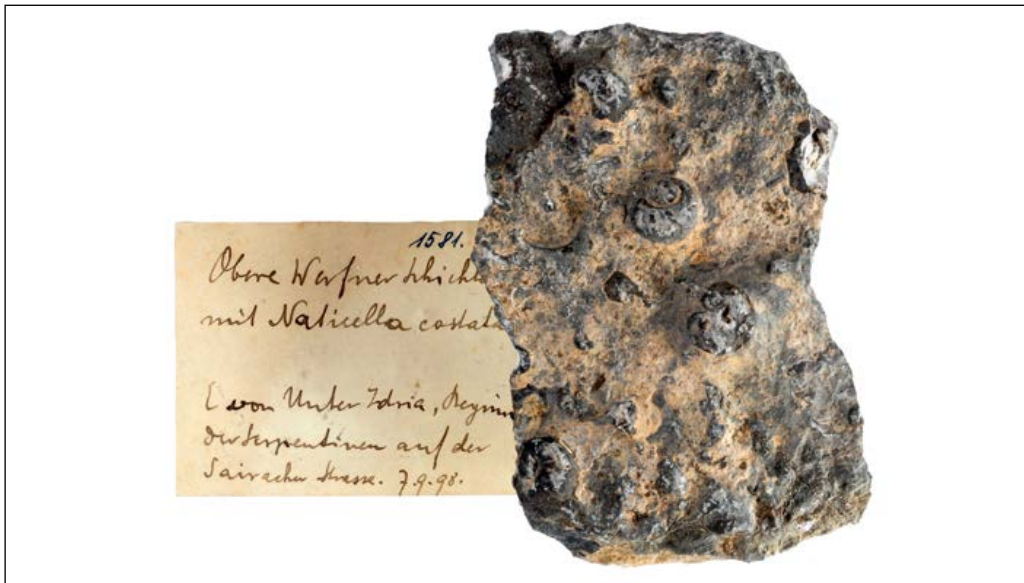 1581.
Obere Werfner Schicht
mit Naticella costata
E von Unter Idria, Beginn
der Serpentinen auf der
Sairacher Strasse. 7.9.98.